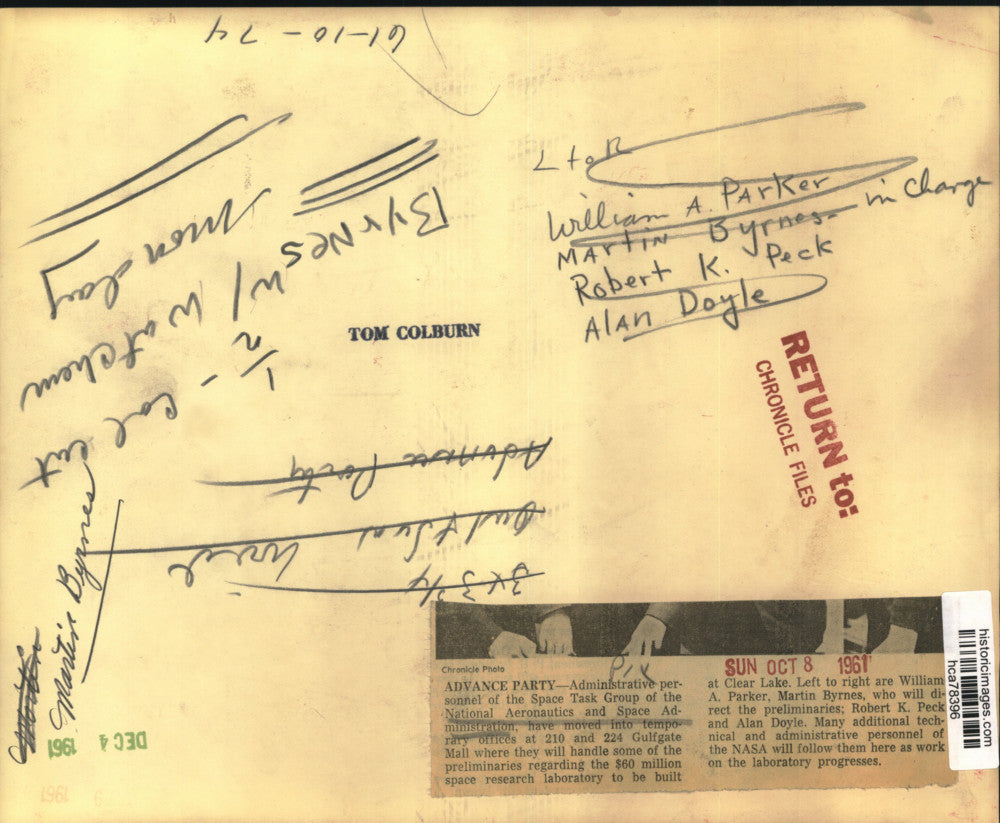 61-10-74
L to R
William A. Parker
Martin Byrnes - in Charge
Robert K. Peck
Alan Doyle
Byrnes
w/ Watchem
Monday
1/2 - Col cut
TOM COLBURN
RETURN to:
CHRONICLE FILES
Advance Party
3 x 3 3/4
Martin Byrnes
DEC 4 1961
1961
Chronicle Photo
Pix
ADVANCE PARTY—Administrative per-
sonnel of the Space Task Group of the
National Aeronautics and Space Ad-
ministration, have moved into tempo-
rary offices at 210 and 224 Gulfgate
Mall where they will handle some of the
preliminaries regarding the $60 million
space research laboratory to be built
SUN OCT 8 1961
at Clear Lake. Left to right are William
A. Parker, Martin Byrnes, who will di-
rect the preliminaries; Robert K. Peck
and Alan Doyle. Many additional tech-
nical and administrative personnel of
the NASA will follow them here as work
on the laboratory progresses.
historicimages.com
hca78396